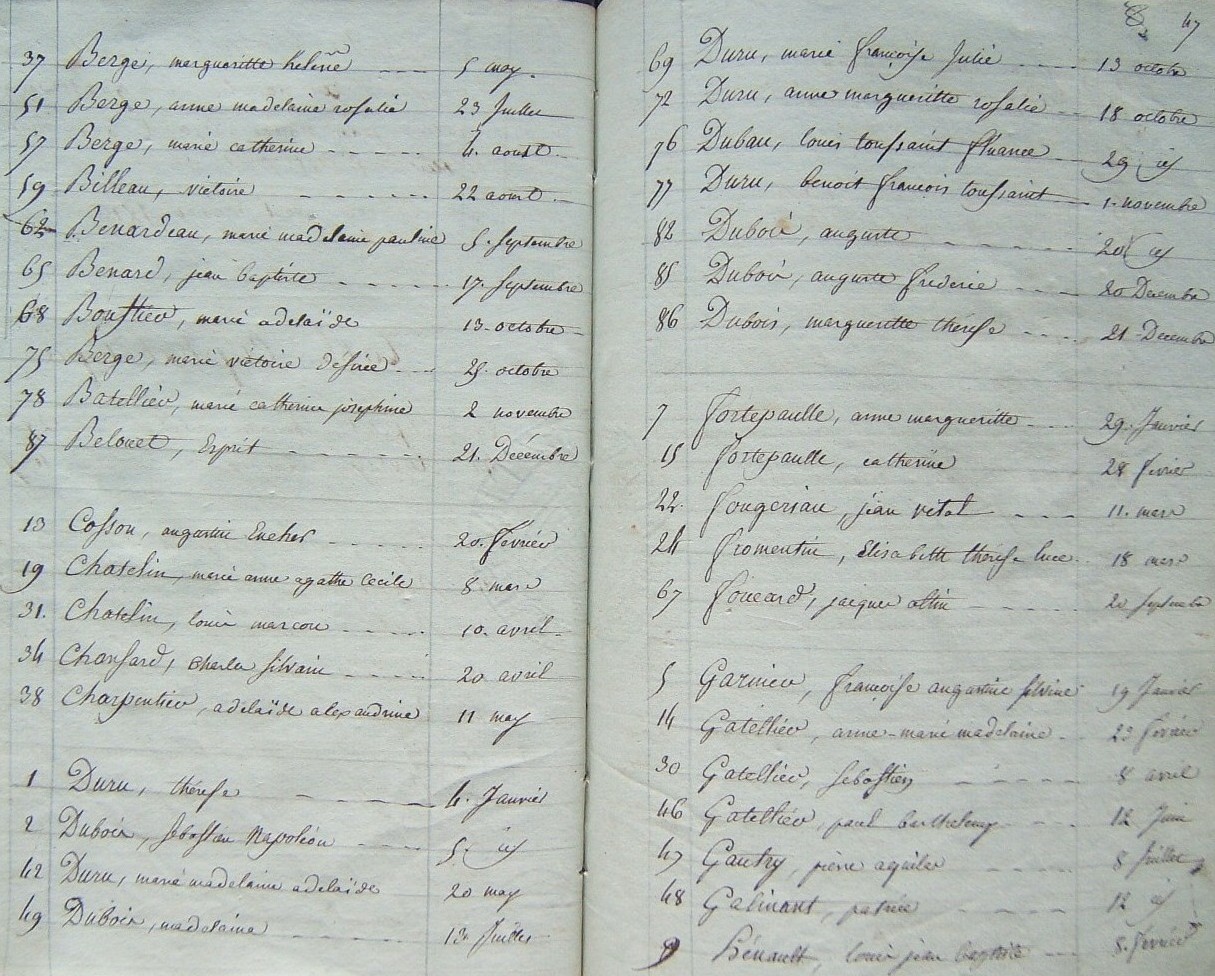 37 Berge, margueritte helene 5 may.
51 Berge, anne madelaine rosalie 23 Juillet
57 Berge, marie catherine 4. aoust
59 Billeau, victoire 22 aoust
62 Benardeau, marie madelaine pauline 5. Septembre
65 Benard, jean baptiste 17. Septembre
68 marie adelaïde 13. octobre
75 Berge, marie victoire désirée 25. octobre
78 Batellier, marie catherine josephine 2 novembre
87 Belouet, Esprit 21. Décembre
13 Cosson, augustin 20. février
19 Chatelin, marie anne agathe cecile 8. mars
31. Chatelin, louis marcou 10. avril
34 Chansard, charles silvain 20 avril
38 Charpentier, adelaïde alexandrine 11 may
1 Duru, thérese 4. Janvier
2 Dubois, sebastien Napoléon 5.
42 Duru, marie madelaine adelaïde 20 may
49 Dubois, madelaine 13. Juillet
47
69 Duru, marie françoise Julie 13 octobre
72 Duru, anne margueritte rosalie 18 octobre
76 Dubau, louis toussaint 29
77 Duru, benoit françois toussaint 1. novembre
82 Dubois, auguste 20
85 Dubois, auguste frederic 20 Decembre
86 Dubois, margueritte thérese 21 Decembre
7 fortepaulle, anne margueritte 29. Janvier
15 fortepaulle, catherine 28 fevrier
22. fougeriau, jean vital 11. mars
24 fromentin, Elisabeth thérese luce 18 mars
67 foucard, jacques 20 septembre
5 Garnier, françoise augustine 19 Janvier
14 Gatellier, anne-marie madelaine 23 février
30 Gatellier, sebastien 8 avril
46 Gatellier, paul barthelemy 12 Juin
47 Gautry, pierre aquilas 8 Juillet
48 Galinant, patrice 12
9 hénault, louis jean baptiste 8. février